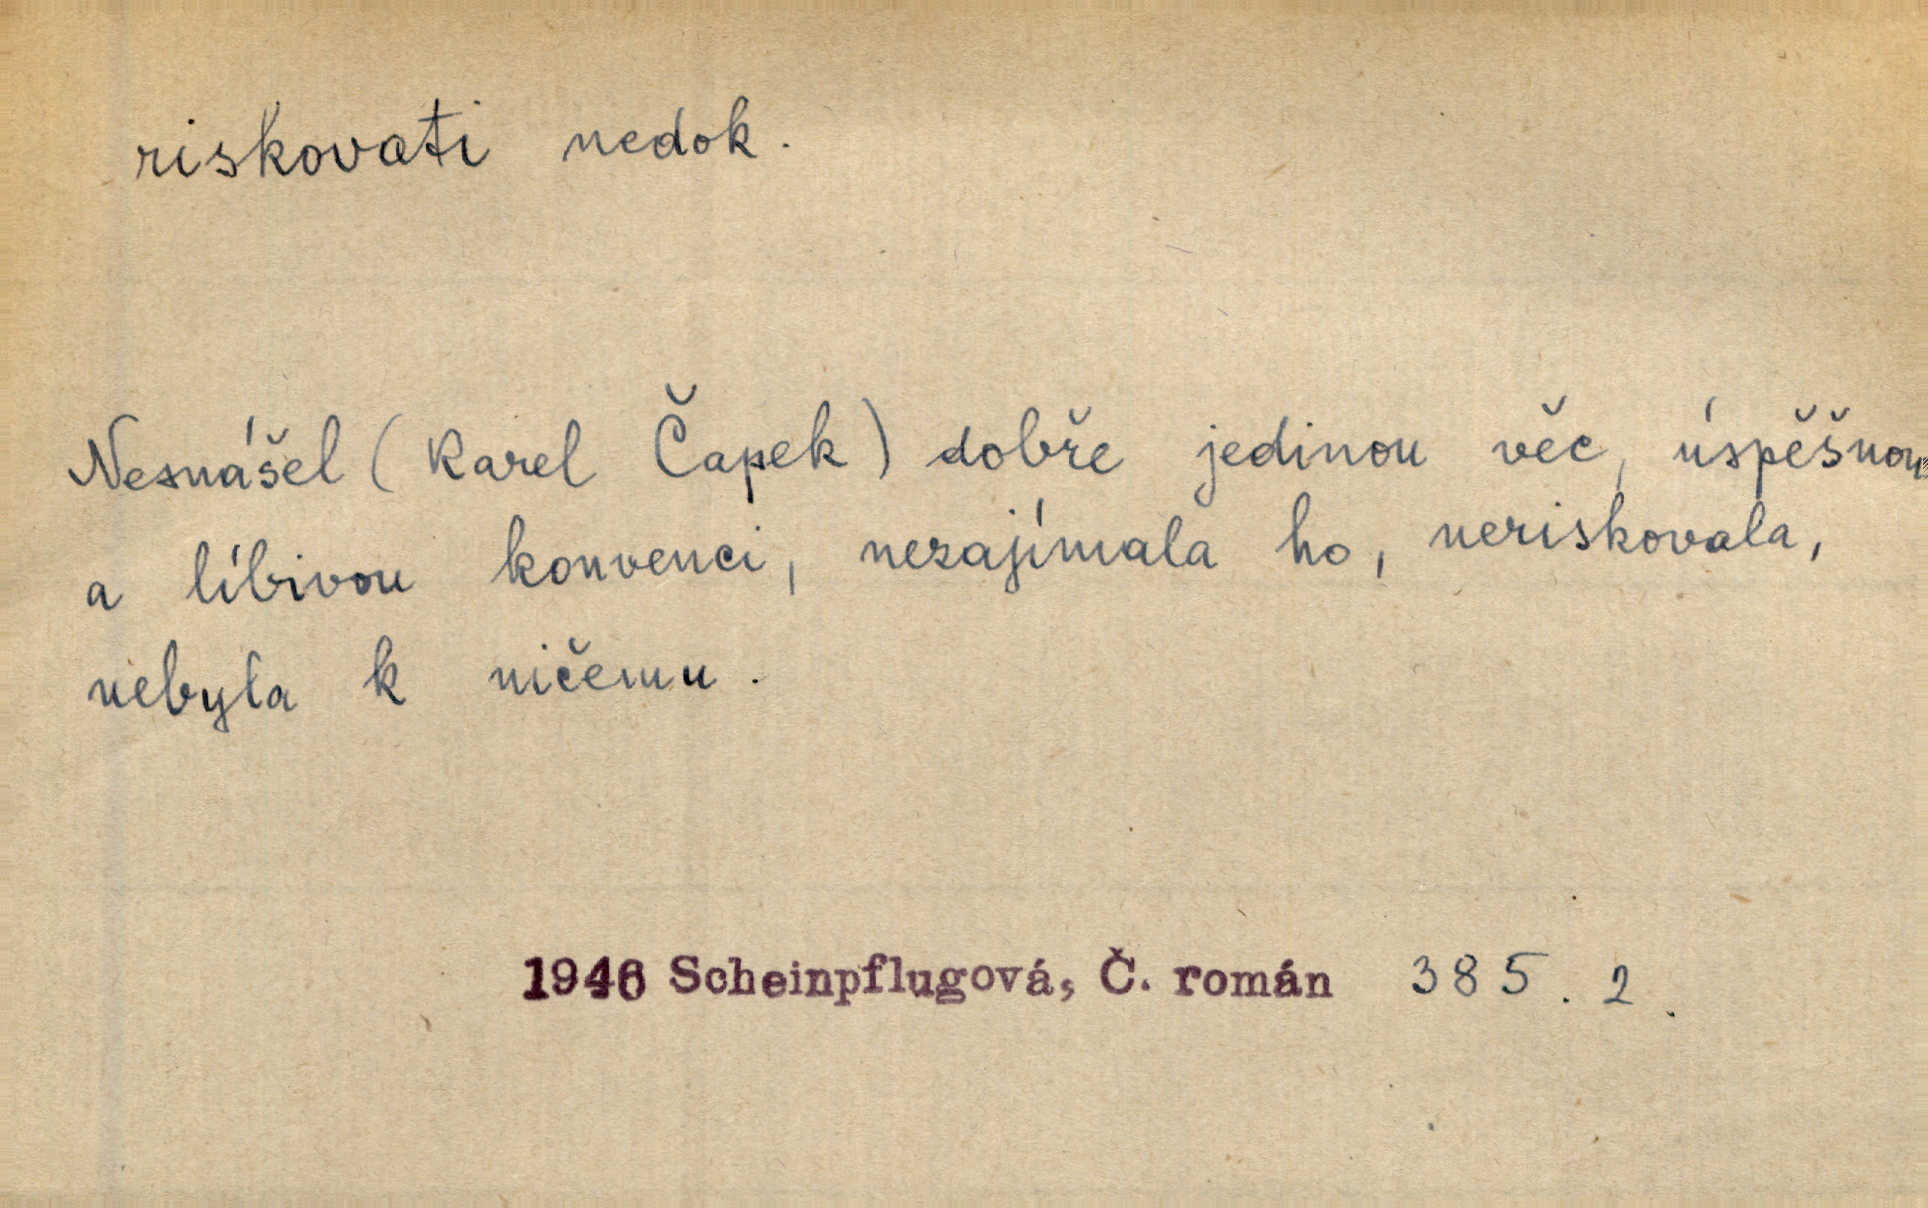 riskovati nedok.
Nesnášel (Karel Čapek) dobře jedinou věc, úspěšnou
a líbivou konvenci, nezajímala ho, neriskovala,
nebyla k ničemu.
1946 Scheinpflugová, Č. román 385. 2.